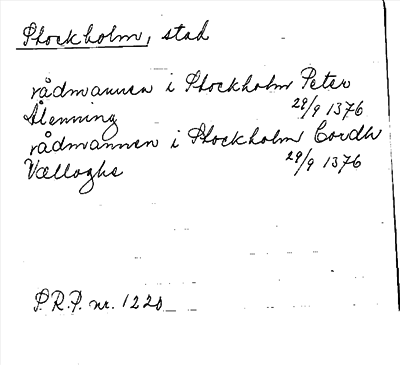 Stockholm, stad
rådmannen i Stockholm Peter
Ålenning 29/9 1376
rådmannen i Stockholm Cordh
Vælloghe 29/9 1376
P.R.P. nr. 1220